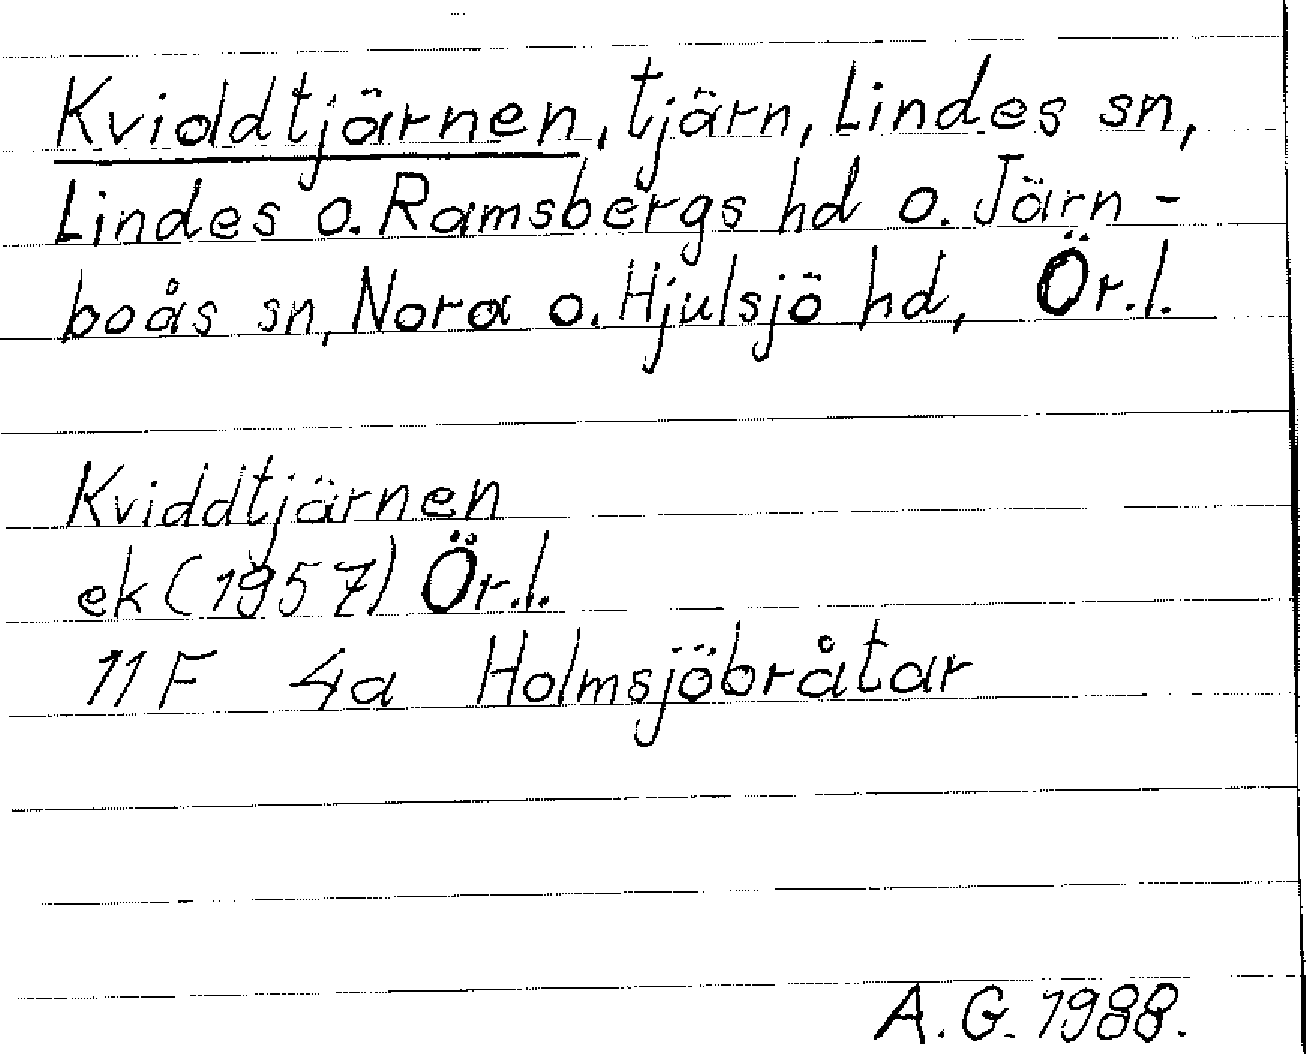 Kviddtjärnen, tjärn, Lindes sn,
Lindes o. Ramsbergs hd o. Järn-
boås sn, Nora o. Hjulsjö hd, Ör.l.
Kviddtjärnen
ek (1957) Ör.l.
11F 4a Holmsjöbråtar
A.G. 1988.